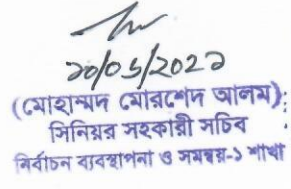 (মোহাম্মদ মোরশেদ আলম)
সিনিয়র সহকারী সচিব
নির্বাচন ব্যবস্থাপনা ও সমন্বয়-১ শাখা